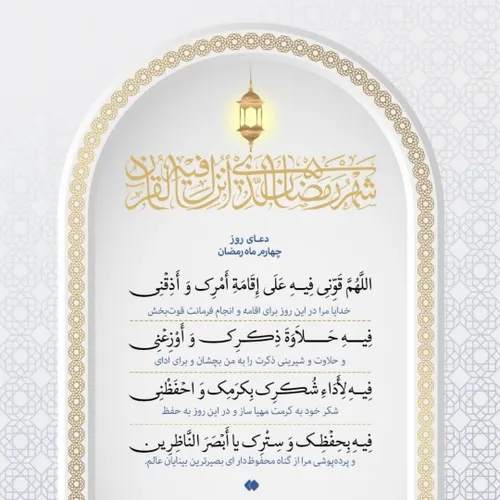 شهر رمضان الذی أنزل فیه القرءان
دعـای روز
چهارم ماه رمضان
اللَّهُمَّ قَوِّنِی فِیهِ عَلَی إِقَامَةِ أَمْرِکَ وَ أَذِقْنِی
خدایا مرا در این روز برای اقامه و انجام فرمانت قوت‌بخش
فِیهِ حَلاوَةَ ذِکرِکَ وَ أَوْزِعْنِی
و حلاوت و شیرینی ذکرت را به من بچشان و برای ادای
فِیهِ لِأَدَاءِ شُکرِکَ بِکَرَمِکَ وَ احْفَظْنِی
شکر خود به کرمت مهیا ساز و در این روز به حفظ
فِیهِ بِحِفْظِکَ وَ سِتْرِکَ یا أَبْصَرَ النَّاظِرِینَ
و پرده‌پوشی مرا از گناه محفوظ‌دار ای بصیرترین بینایان عالم.